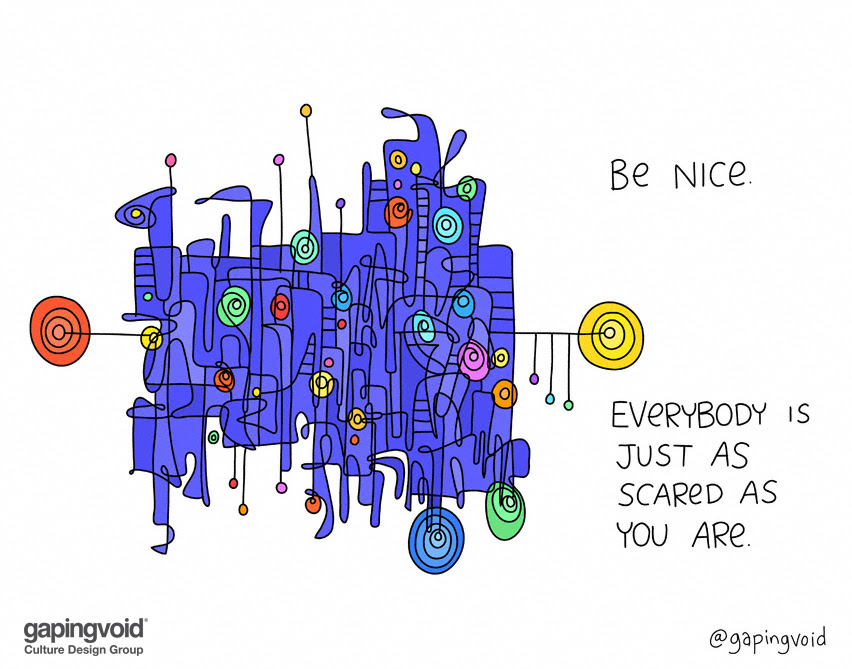 Be NICe.
EVeRYBODY IS
JUST AS
SCAReD AS
YOU ARe.
gapingvoid®
Culture Design Group
@gapingvoid